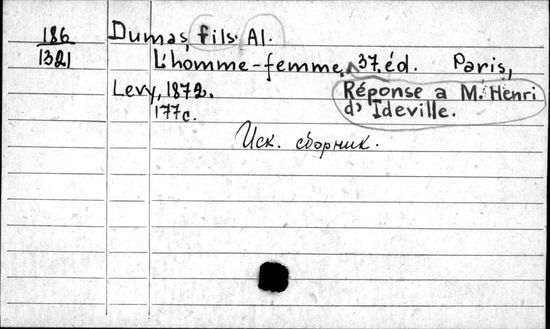 186 Dumas fils Al.
1321 L'homme-femme. 37 éd. Paris,
Levy, 1872. Réponse a M. Henri
177c. d' Ideville.
Иск. сборник.